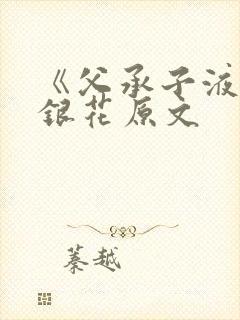 《父承子液
銀花原文
蓁越